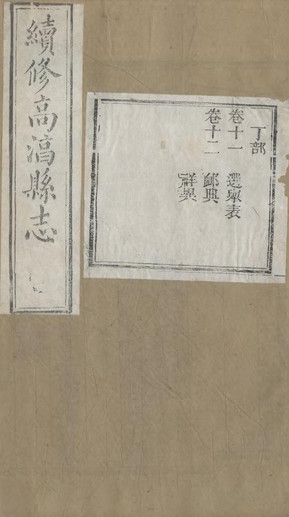 續修高淳縣志
丁部
卷十一 選舉表
卷十二 卹典
祥異